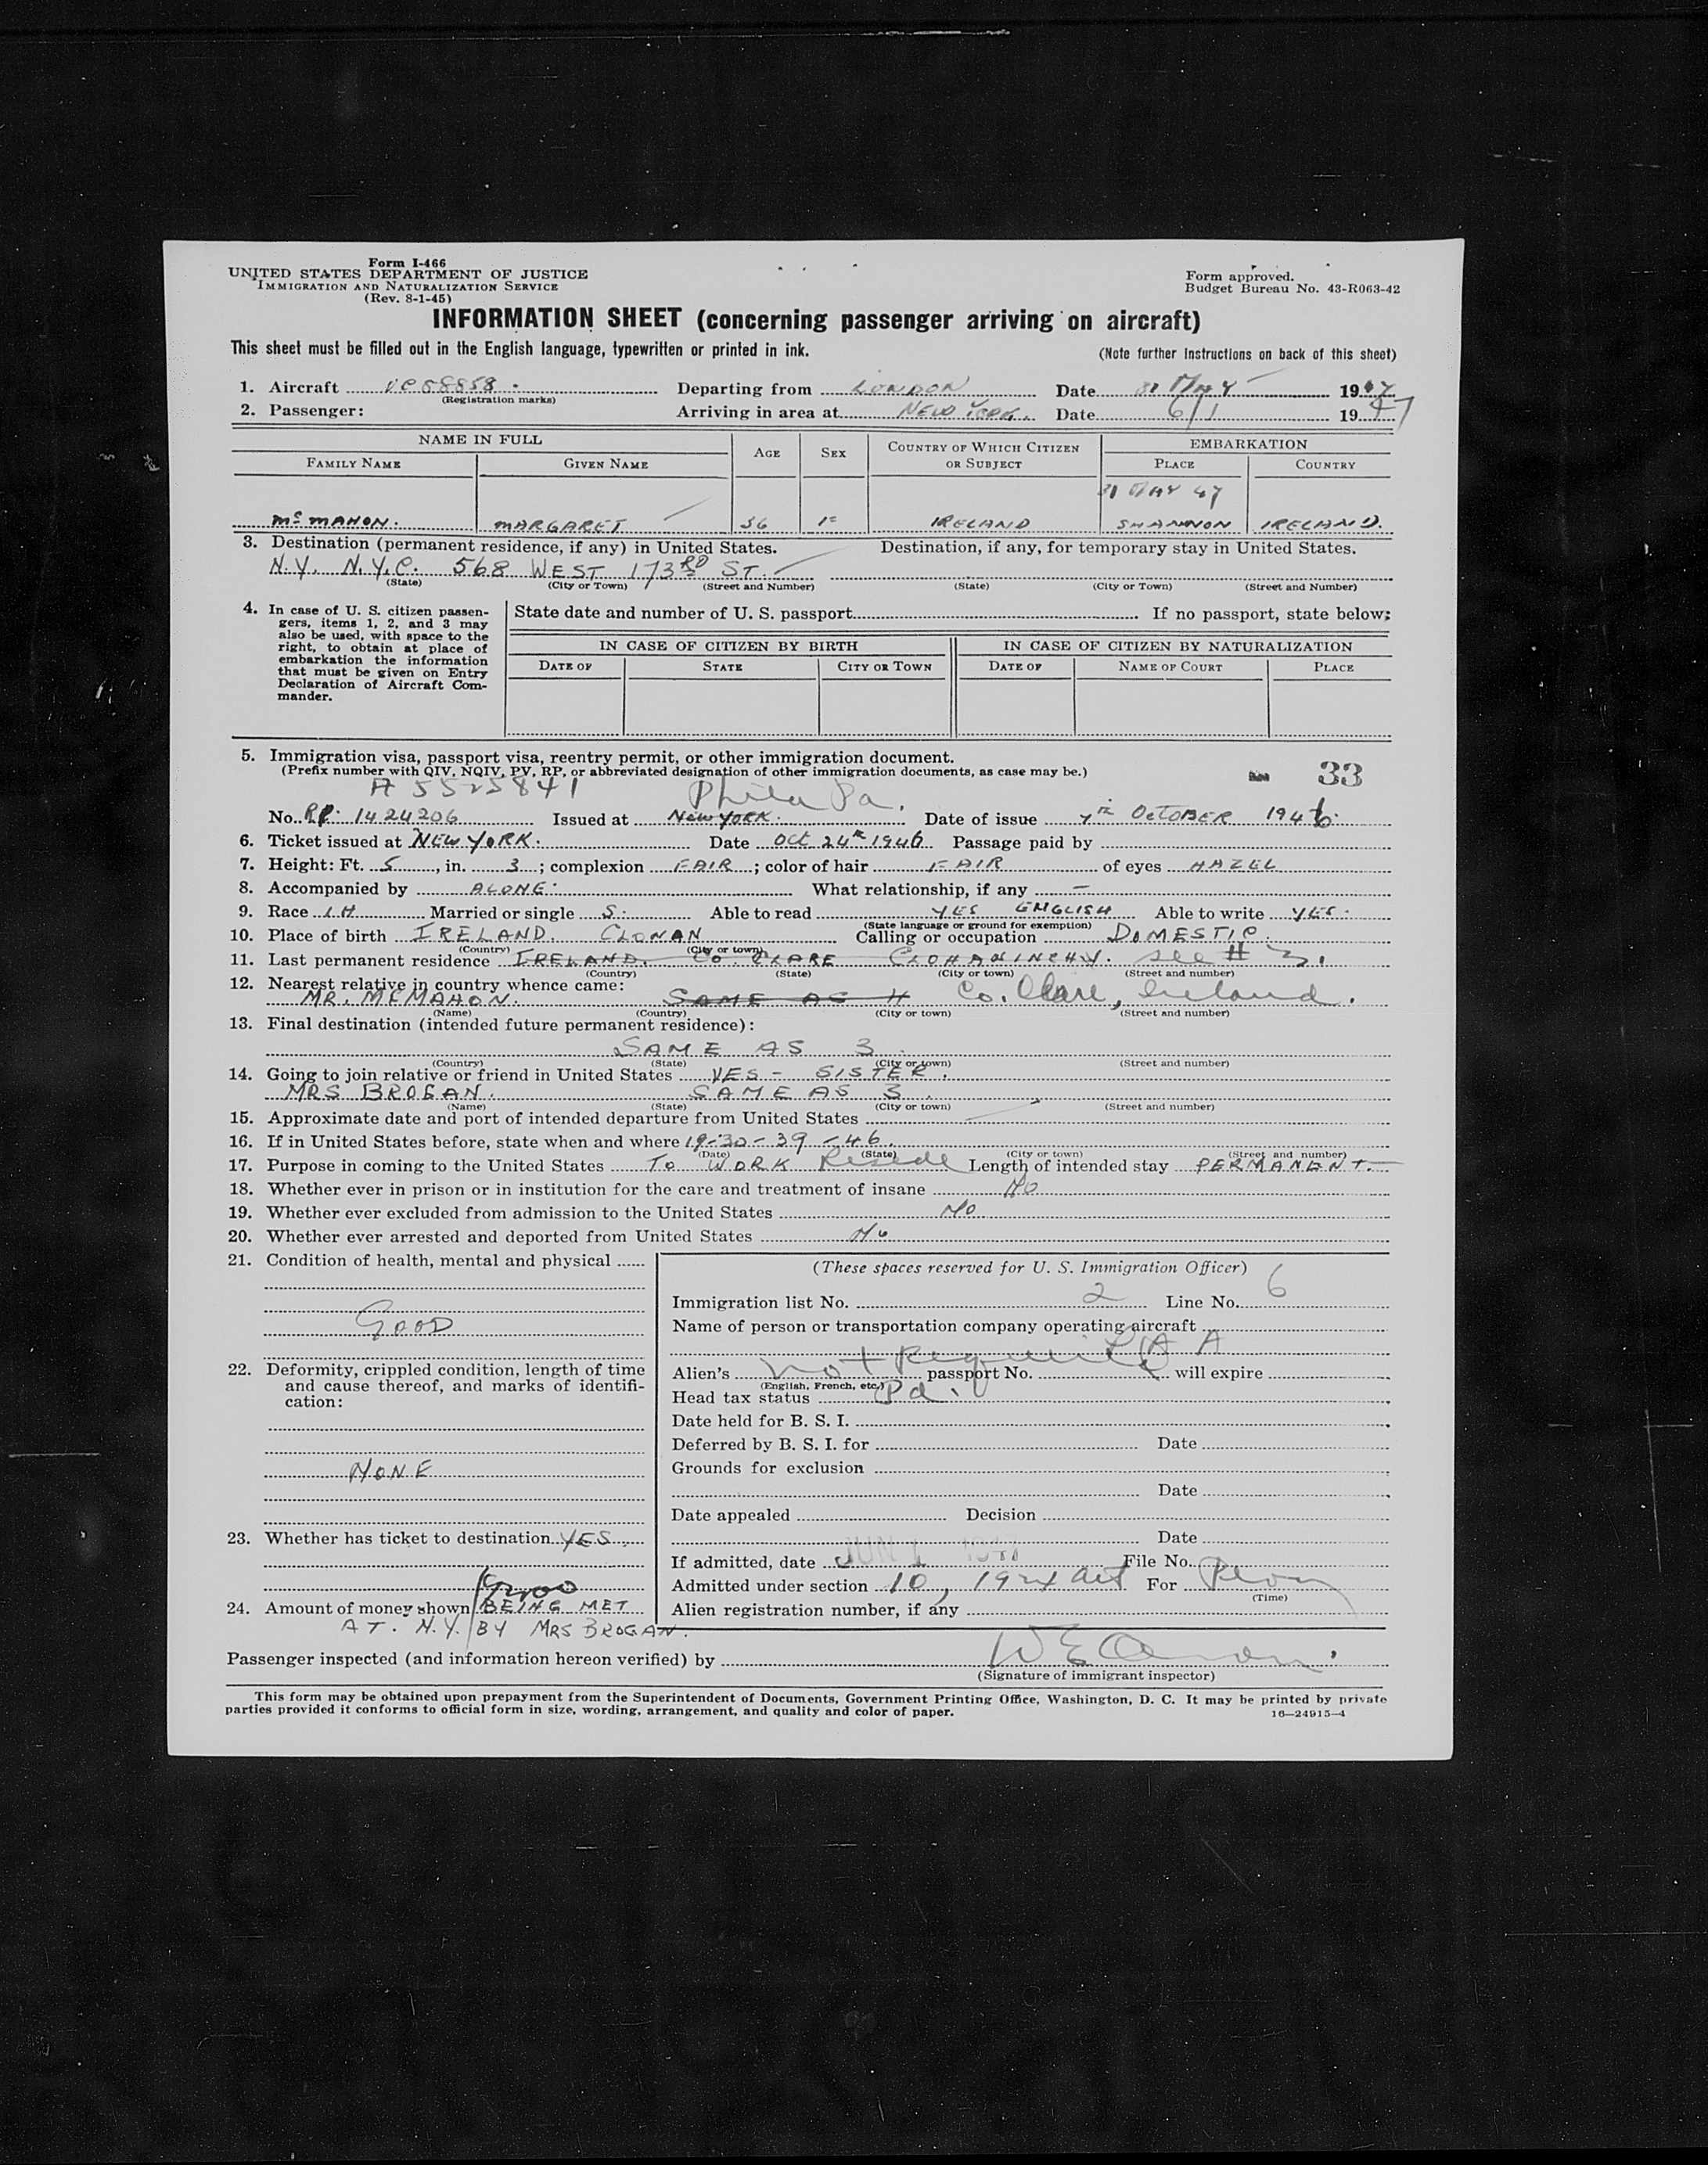 Form I-466
UNITED STATES DEPARTMENT OF JUSTICE
IMMIGRATION AND NATURALIZATION SERVICE
(Rev. 8-1-45)
Form approved.
Budget Bureau No. 43-R063-42
INFORMATION SHEET (concerning passenger arriving on aircraft)
This sheet must be filled out in the English language, typewritten or printed in ink.
(Note further Instructions on back of this sheet)
1. Aircraft Departing from LONDON Date 31 MAY 1947
(Registration marks)
2. Passenger: Arriving in area at NEW YORK. Date 6/1 1947
NAME IN FULL AGE SEX COUNTRY OF WHICH CITIZEN OR SUBJECT EMBARKATION
FAMILY NAME GIVEN NAME PLACE COUNTRY
31 MAY 47
McMAHON. MARGARET 36 F IRELAND SHANNON IRELAND.
3. Destination (permanent residence, if any) in United States. Destination, if any, for temporary stay in United States.
N.Y. N.Y.C. 568 WEST 173RD ST.
(State) (City or Town) (Street and Number) (State) (City or Town) (Street and Number)
4. In case of U. S. citizen passengers, items 1, 2, and 3 may also be used, with space to the right, to obtain at place of embarkation the information that must be given on Entry Declaration of Aircraft Commander.
State date and number of U. S. passport If no passport, state below:
IN CASE OF CITIZEN BY BIRTH IN CASE OF CITIZEN BY NATURALIZATION
DATE OF STATE CITY OR TOWN DATE OF NAME OF COURT PLACE
5. Immigration visa, passport visa, reentry permit, or other immigration document.
(Prefix number with QIV, NQIV, PV, RP, or abbreviated designation of other immigration documents, as case may be.)
33
A 5525841 Phila Pa.
No. RP. 1424206 Issued at NEW YORK. Date of issue 7th OCTOBER 1946.
6. Ticket issued at NEW YORK. Date Oct 24th 1946 Passage paid by
7. Height: Ft. 5, in. 3; complexion FAIR; color of hair FAIR of eyes HAZEL
8. Accompanied by ALONE. What relationship, if any —
9. Race Married or single S. Able to read YES ENGLISH Able to write YES.
(State language or ground for exemption)
10. Place of birth IRELAND. CLONAN Calling or occupation DOMESTIC.
(Country) (City or town)
11. Last permanent residence IRELAND. CO. CLARE CLOHANINCHY. see # 3.
(Country) (State) (City or town) (Street and number)
12. Nearest relative in country whence came:
MR. McMAHON. SAME AS 11 Co. Clare, Ireland.
(Name) (Country) (City or town) (Street and number)
13. Final destination (intended future permanent residence):
SAME AS 3.
(Country) (State) (City or town) (Street and number)
14. Going to join relative or friend in United States YES - SISTER.
MRS BROGAN. SAME AS 3.
(Name) (State) (City or town) (Street and number)
15. Approximate date and port of intended departure from United States
16. If in United States before, state when and where 19-30-39-46.
(Date) (State) (City or town) (Street and number)
17. Purpose in coming to the United States TO WORK Reside Length of intended stay PERMANENT.
18. Whether ever in prison or in institution for the care and treatment of insane NO
19. Whether ever excluded from admission to the United States NO
20. Whether ever arrested and deported from United States No
21. Condition of health, mental and physical
GOOD
22. Deformity, crippled condition, length of time and cause thereof, and marks of identification:
NONE
23. Whether has ticket to destination YES.
24. Amount of money shown BEING MET
AT. N.Y. BY MRS BROGAN.
(These spaces reserved for U. S. Immigration Officer)
Immigration list No. 2 Line No. 6
Name of person or transportation company operating aircraft
P A A
Alien's not Required passport No. will expire
(English, French, etc.)
Head tax status Pd.
Date held for B. S. I.
Deferred by B. S. I. for Date
Grounds for exclusion
Date
Date appealed Decision
Date
If admitted, date JUN 1 1947 File No.
Admitted under section 10, 1924 act For Perm
(Time)
Alien registration number, if any
Passenger inspected (and information hereon verified) by
(Signature of immigrant inspector)
This form may be obtained upon prepayment from the Superintendent of Documents, Government Printing Office, Washington, D. C. It may be printed by private
parties provided it conforms to official form in size, wording, arrangement, and quality and color of paper.
16—24915-4